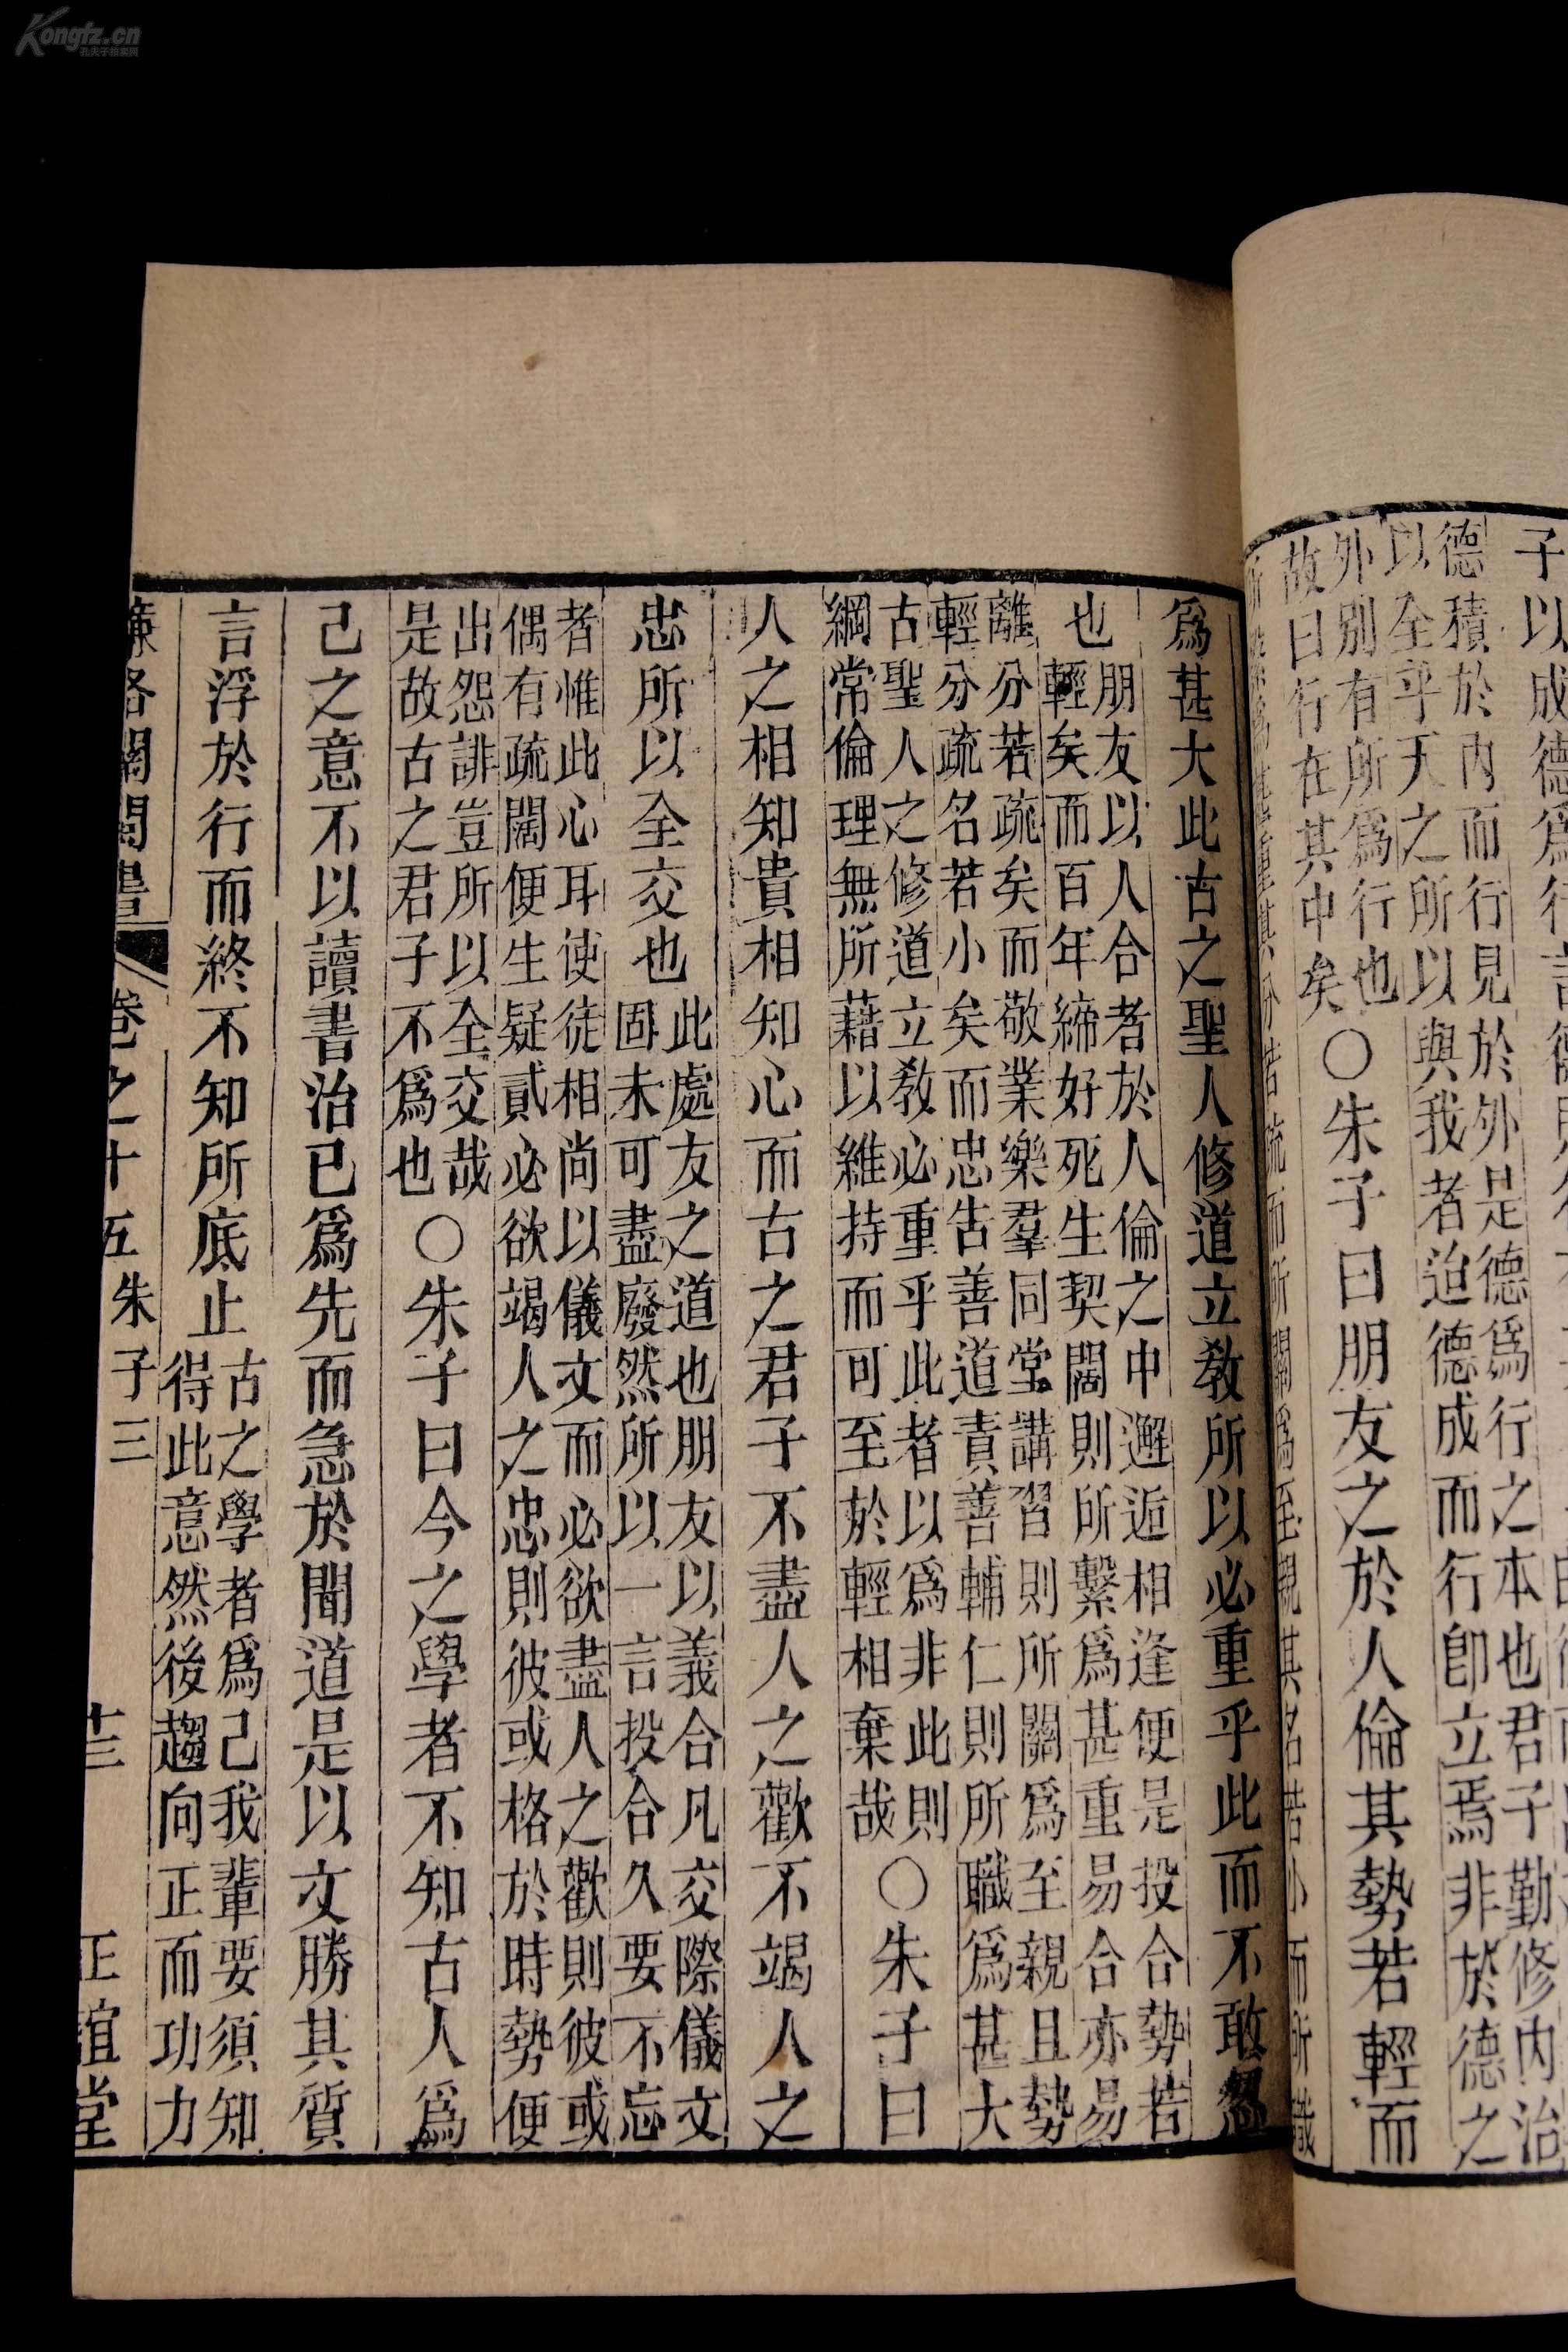 Kongfz.cn
孔夫子旧书网
子以成德爲行言德
德積於內而行見於外是德爲行之本也君子勤修內治
以全乎天之所以與我者迨德成而行卽立焉非於德之
外別有所爲行也
故曰行在其中矣
○朱子曰朋友之於人倫其勢若輕而
爲甚大此古之聖人修道立教所以必重乎此而不敢忽
也
朋友以人合者於人倫之中邂逅相逢便是投合勢若
輕矣而百年締好死生契闊則所繫爲甚重易合亦易
離分若疏矣而敬業樂羣同堂講習則所關爲至親且勢
輕分疏名若小矣而忠告善道責善輔仁則所職爲甚大
古聖人之修道立教必重乎此者以爲非此則
綱常倫理無所藉以維持而可至於輕相棄哉
○朱子曰
人之相知貴相知心而古之君子不盡人之歡不竭人之
忠所以全交也
此處友之道也朋友以義合凡交際儀文
固未可盡廢然所以一言投合久要不忘
者惟此心耳使徒相尚以儀文而必欲盡人之歡則彼或
偶有疏闊便生疑貳必欲竭人之忠則彼或格於時勢便
出怨誹豈所以全交哉
是故古之君子不爲也
○朱子曰今之學者不知古人爲
己之意不以讀書治已爲先而急於聞道是以文勝其質
言浮於行而終不知所底止
古之學者爲己我輩要須知
得此意然後趨向正而功力
濂洛關閩書 卷之十五 朱子三 十三 正誼堂